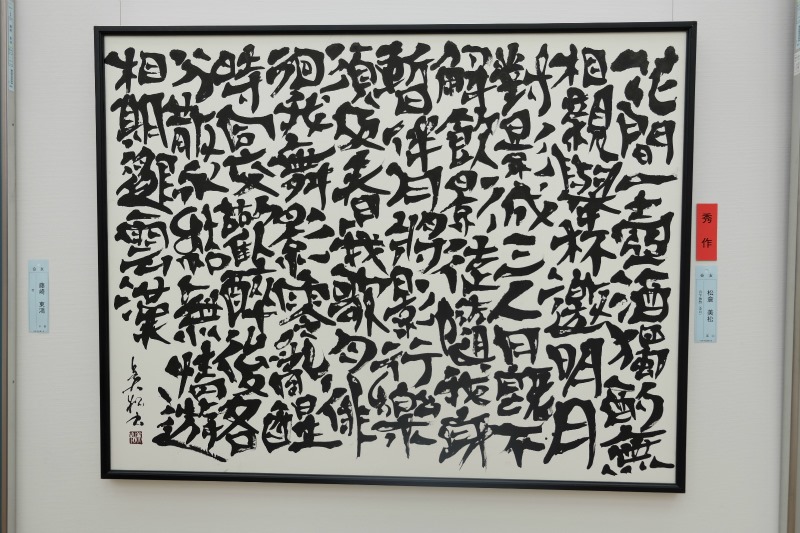 花間一壺酒獨酌無
相親舉杯邀明月
對影成三人月既不
解飲影徒隨我身
暫伴月將影行樂
須及春我歌月徘
徊我舞影零亂醒
時同交歡醉後各
分散永結無情遊
相期邈雲漢
美松書
秀作
美松